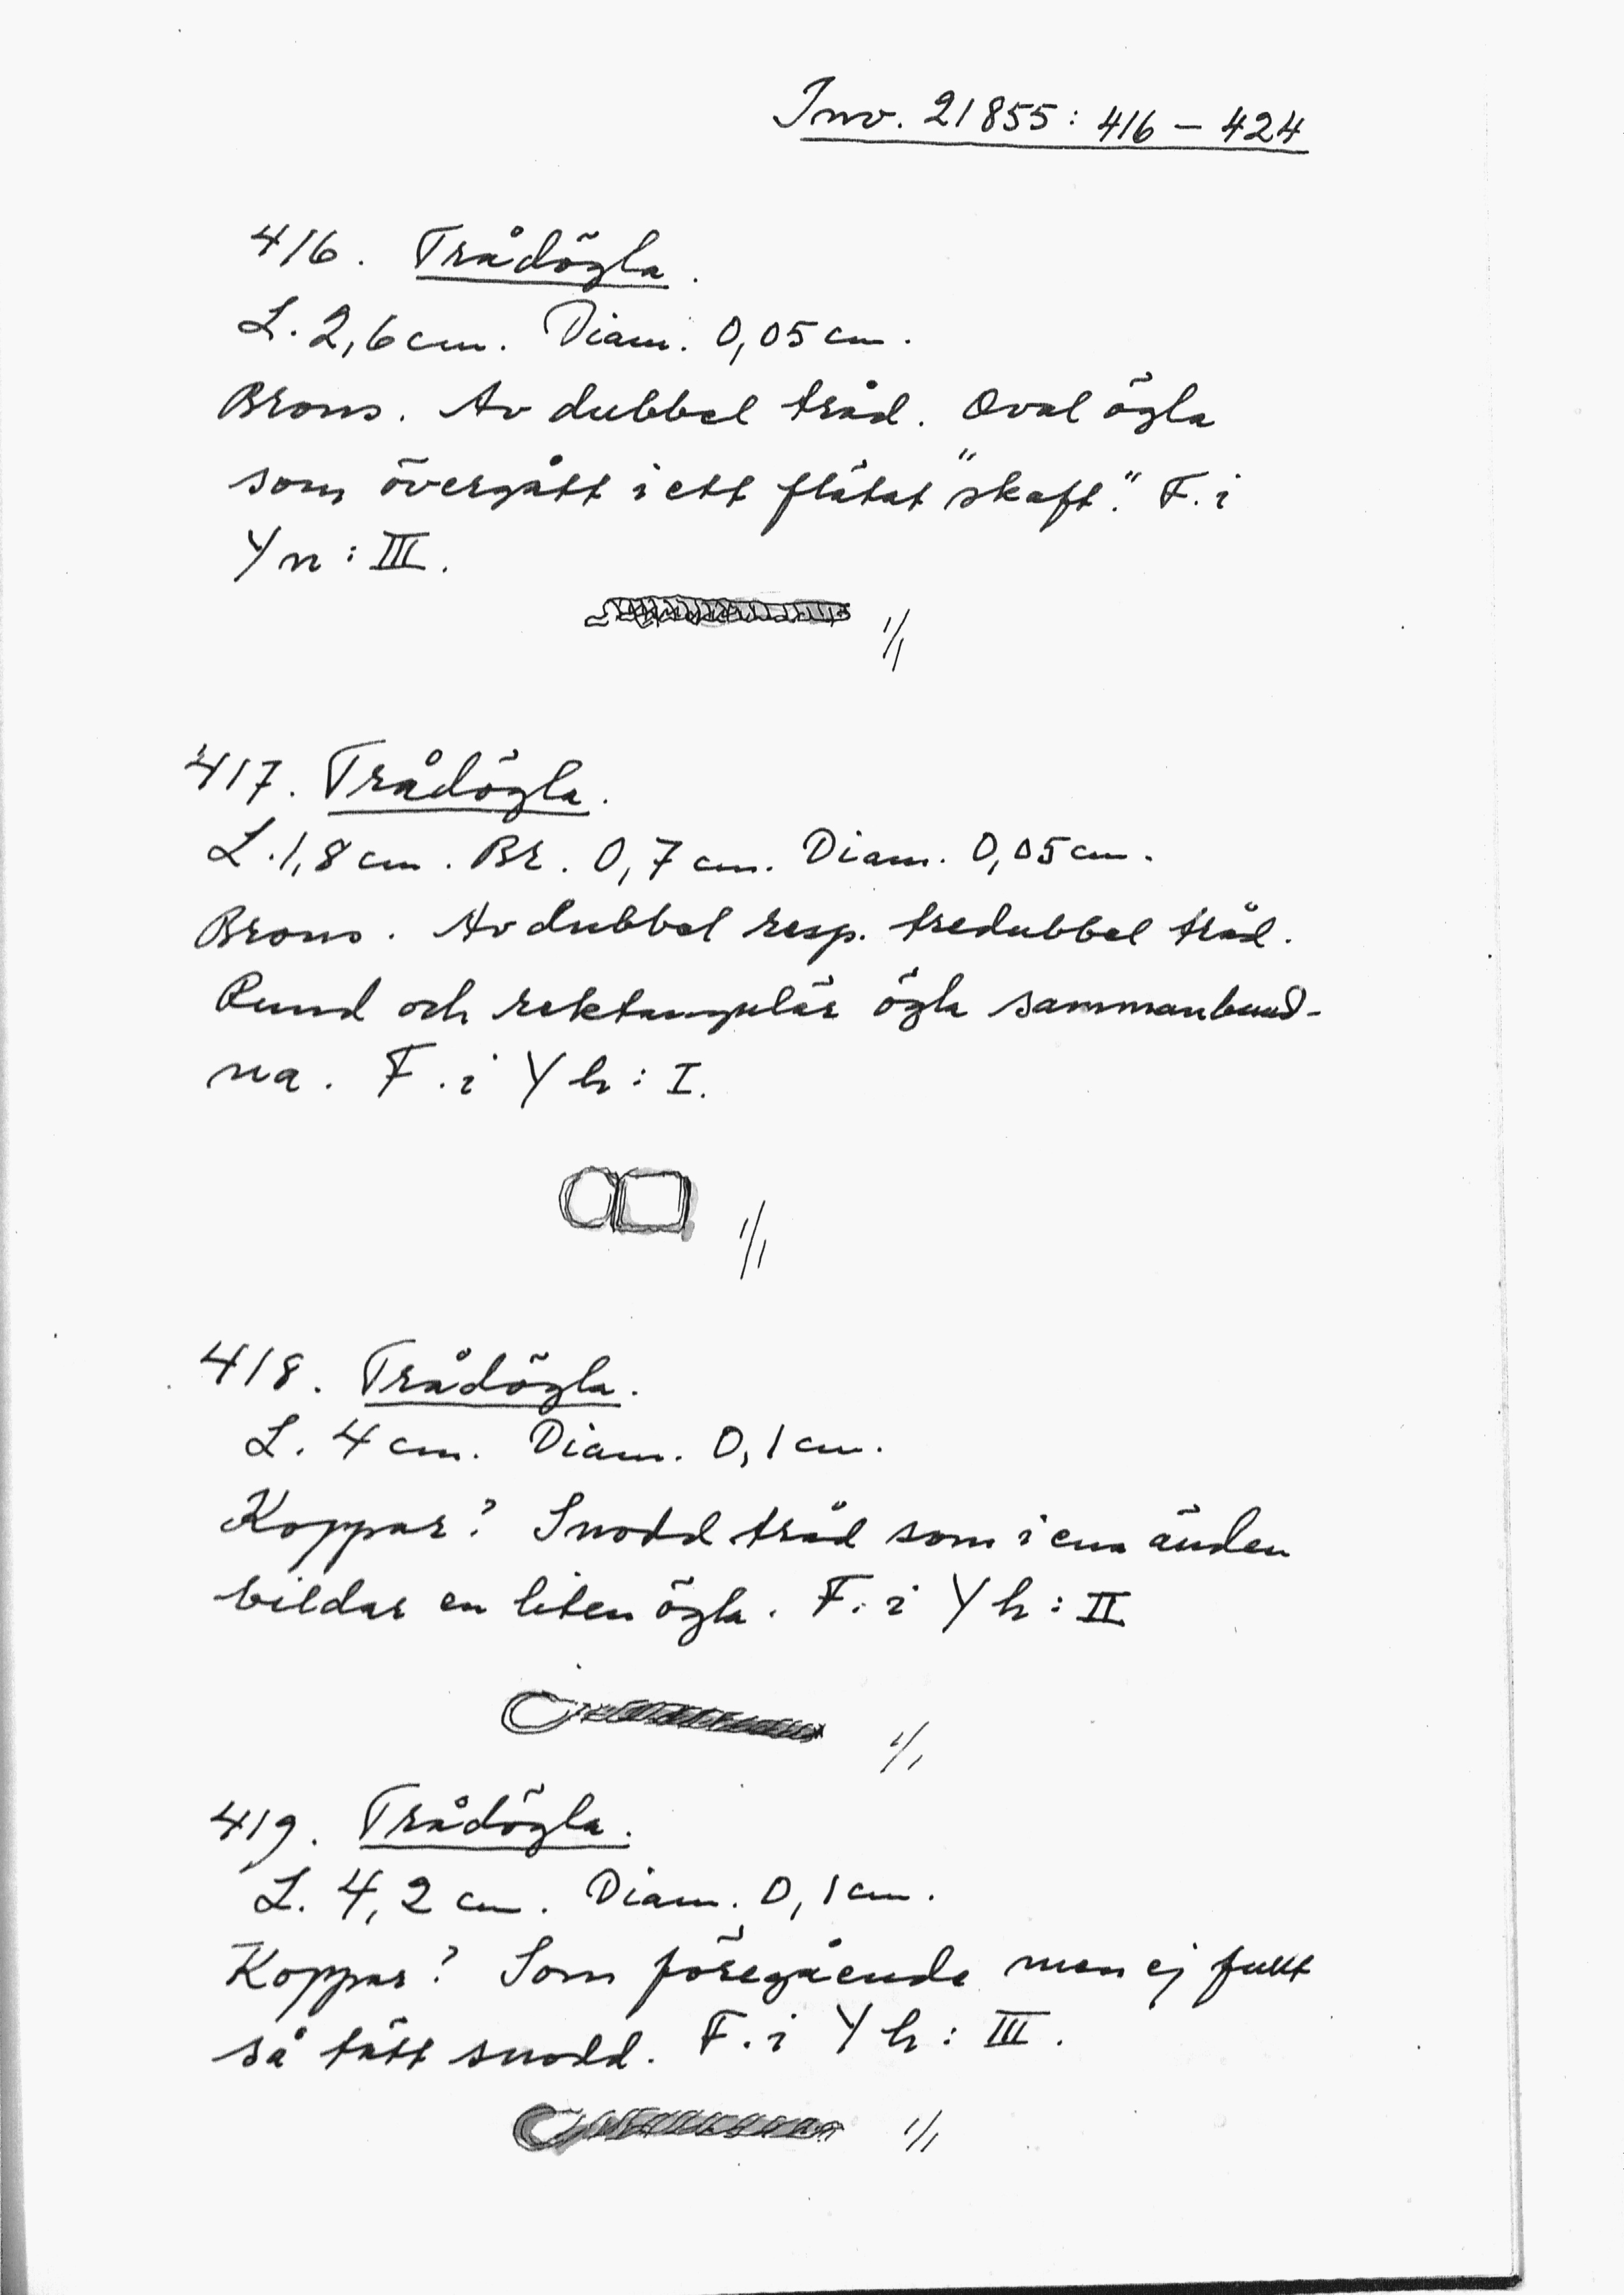 Inv. 21855: 416 – 424
416. Trådögla.
L. 2,6 cm. Diam. 0,05 cm.
Brons. Av dubbel tråd. Oval ögla
som övergått i ett flätat "skaft". F. i
Yn: III.
1/1
417. Trådögla.
L. 1,8 cm. Br. 0,7 cm. Diam. 0,05 cm.
Brons. Av dubbel resp. tredubbel tråd.
Rund och rektangulär ögla sammanbund-
na. F. i Yh: I.
1/1
418. Trådögla.
L. 4 cm. Diam. 0,1 cm.
Koppar? Snodd tråd som i ena änden
bildar en liten ögla. F. i Yh: II
1/1
419. Trådögla.
L. 4,2 cm. Diam. 0,1 cm.
Koppar? Som föregående men ej fullt
så tätt snodd. F. i Yh: III.
1/1